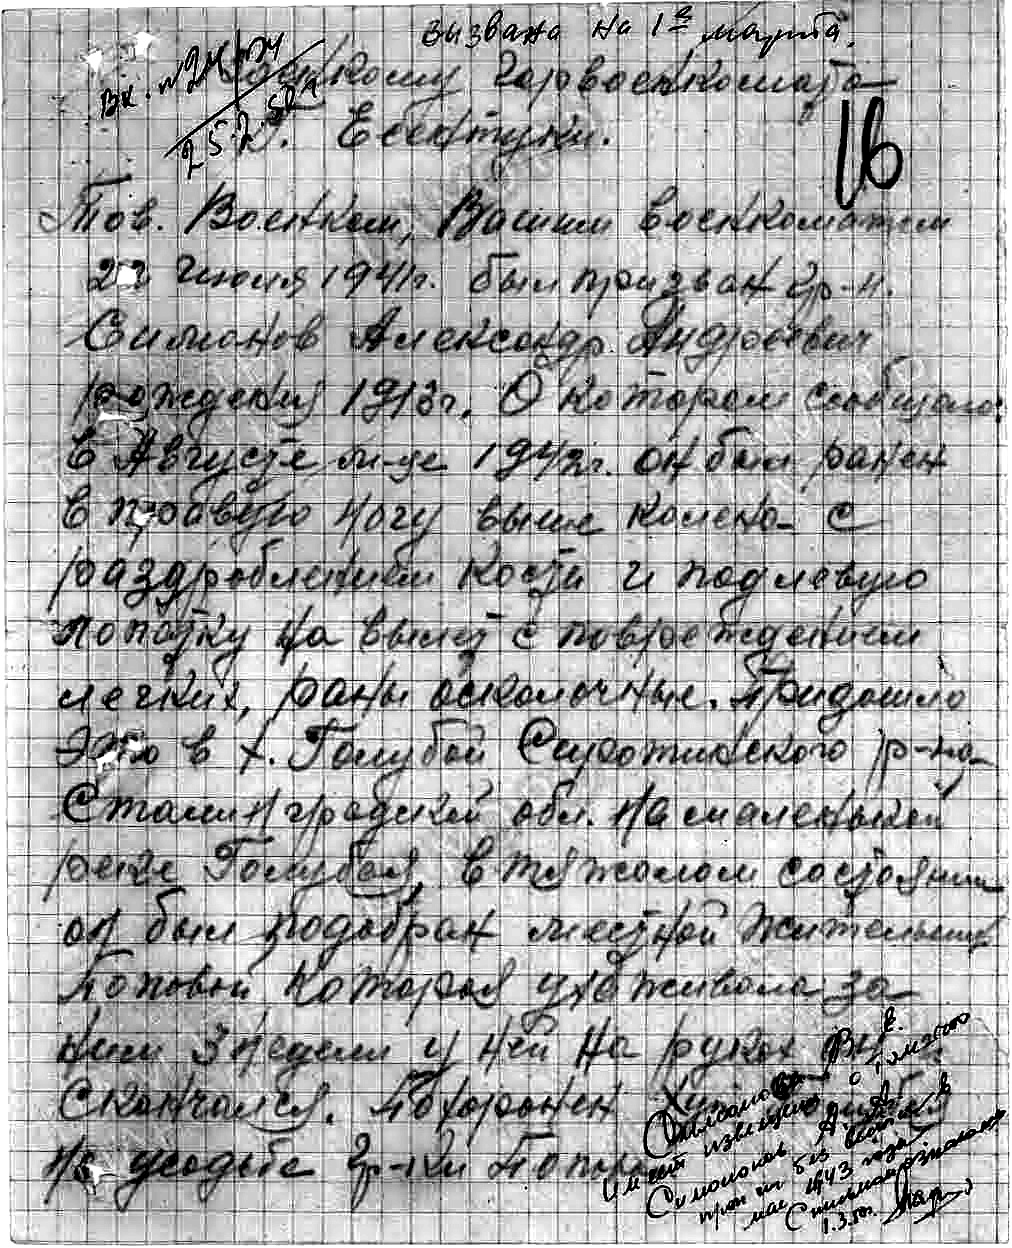 Вызвана на 1е марта.
Вх. №
25.2.50г
Горвоенкомата
г. Ессентуки.
16
Тов. Военком, Вашим военкоматом
22 Июня 1941г. был призван гр-н.
Симонов Александр Андреевич
рождения 1913г. О котором сообщаю:
В Августе м-це 1942г. он был ранен
в правую ногу выше колена с
раздроблением кости и под левую
лопатку на вылет с повреждением
легких, раны осколочные. Придошло
это в х. Голубой Сиротинского р-на
Сталинградской обл. на маленькой
реке Голубая в тяжолом состоянии
он был подобран местной жительницей
Поповой которая ухаживала за
ним 3 недели у ней на руках он и
скончался. Похоронен
на усадьбе гр-ки Попов
имеет извещение о том что
Симонов А. А.
проп. без вести в
мае 1943 года
С письмом ознакомлена
1.3.50г.